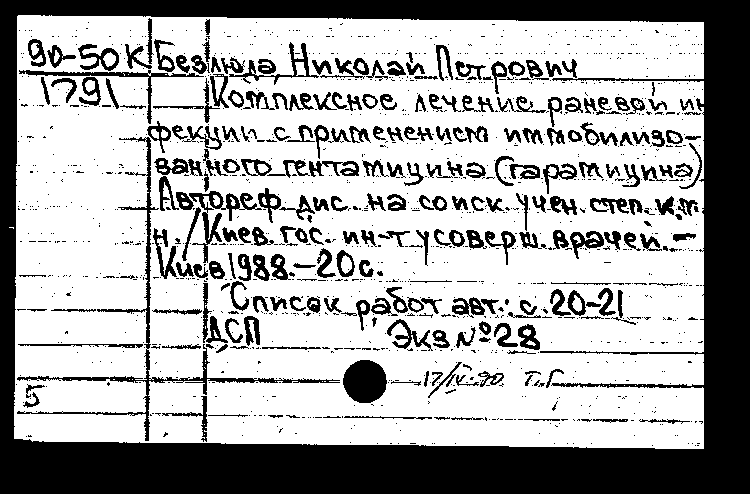 90-50К Безлюда, Николай Петрович
1791 Комплексное лечение раневой ин
фекции с применением иммобилизо-
ванного гентамицина (гарамицина)
Автореф. дис. на соиск. учен. степ. к.м.
н. / Киев. гос. ин-т усоверш. врачей. —
Киев 1988. — 20 с.
Список работ авт.: с. 20-21
ДСП Экз № 28
17/IV-90. Т.Г.
5